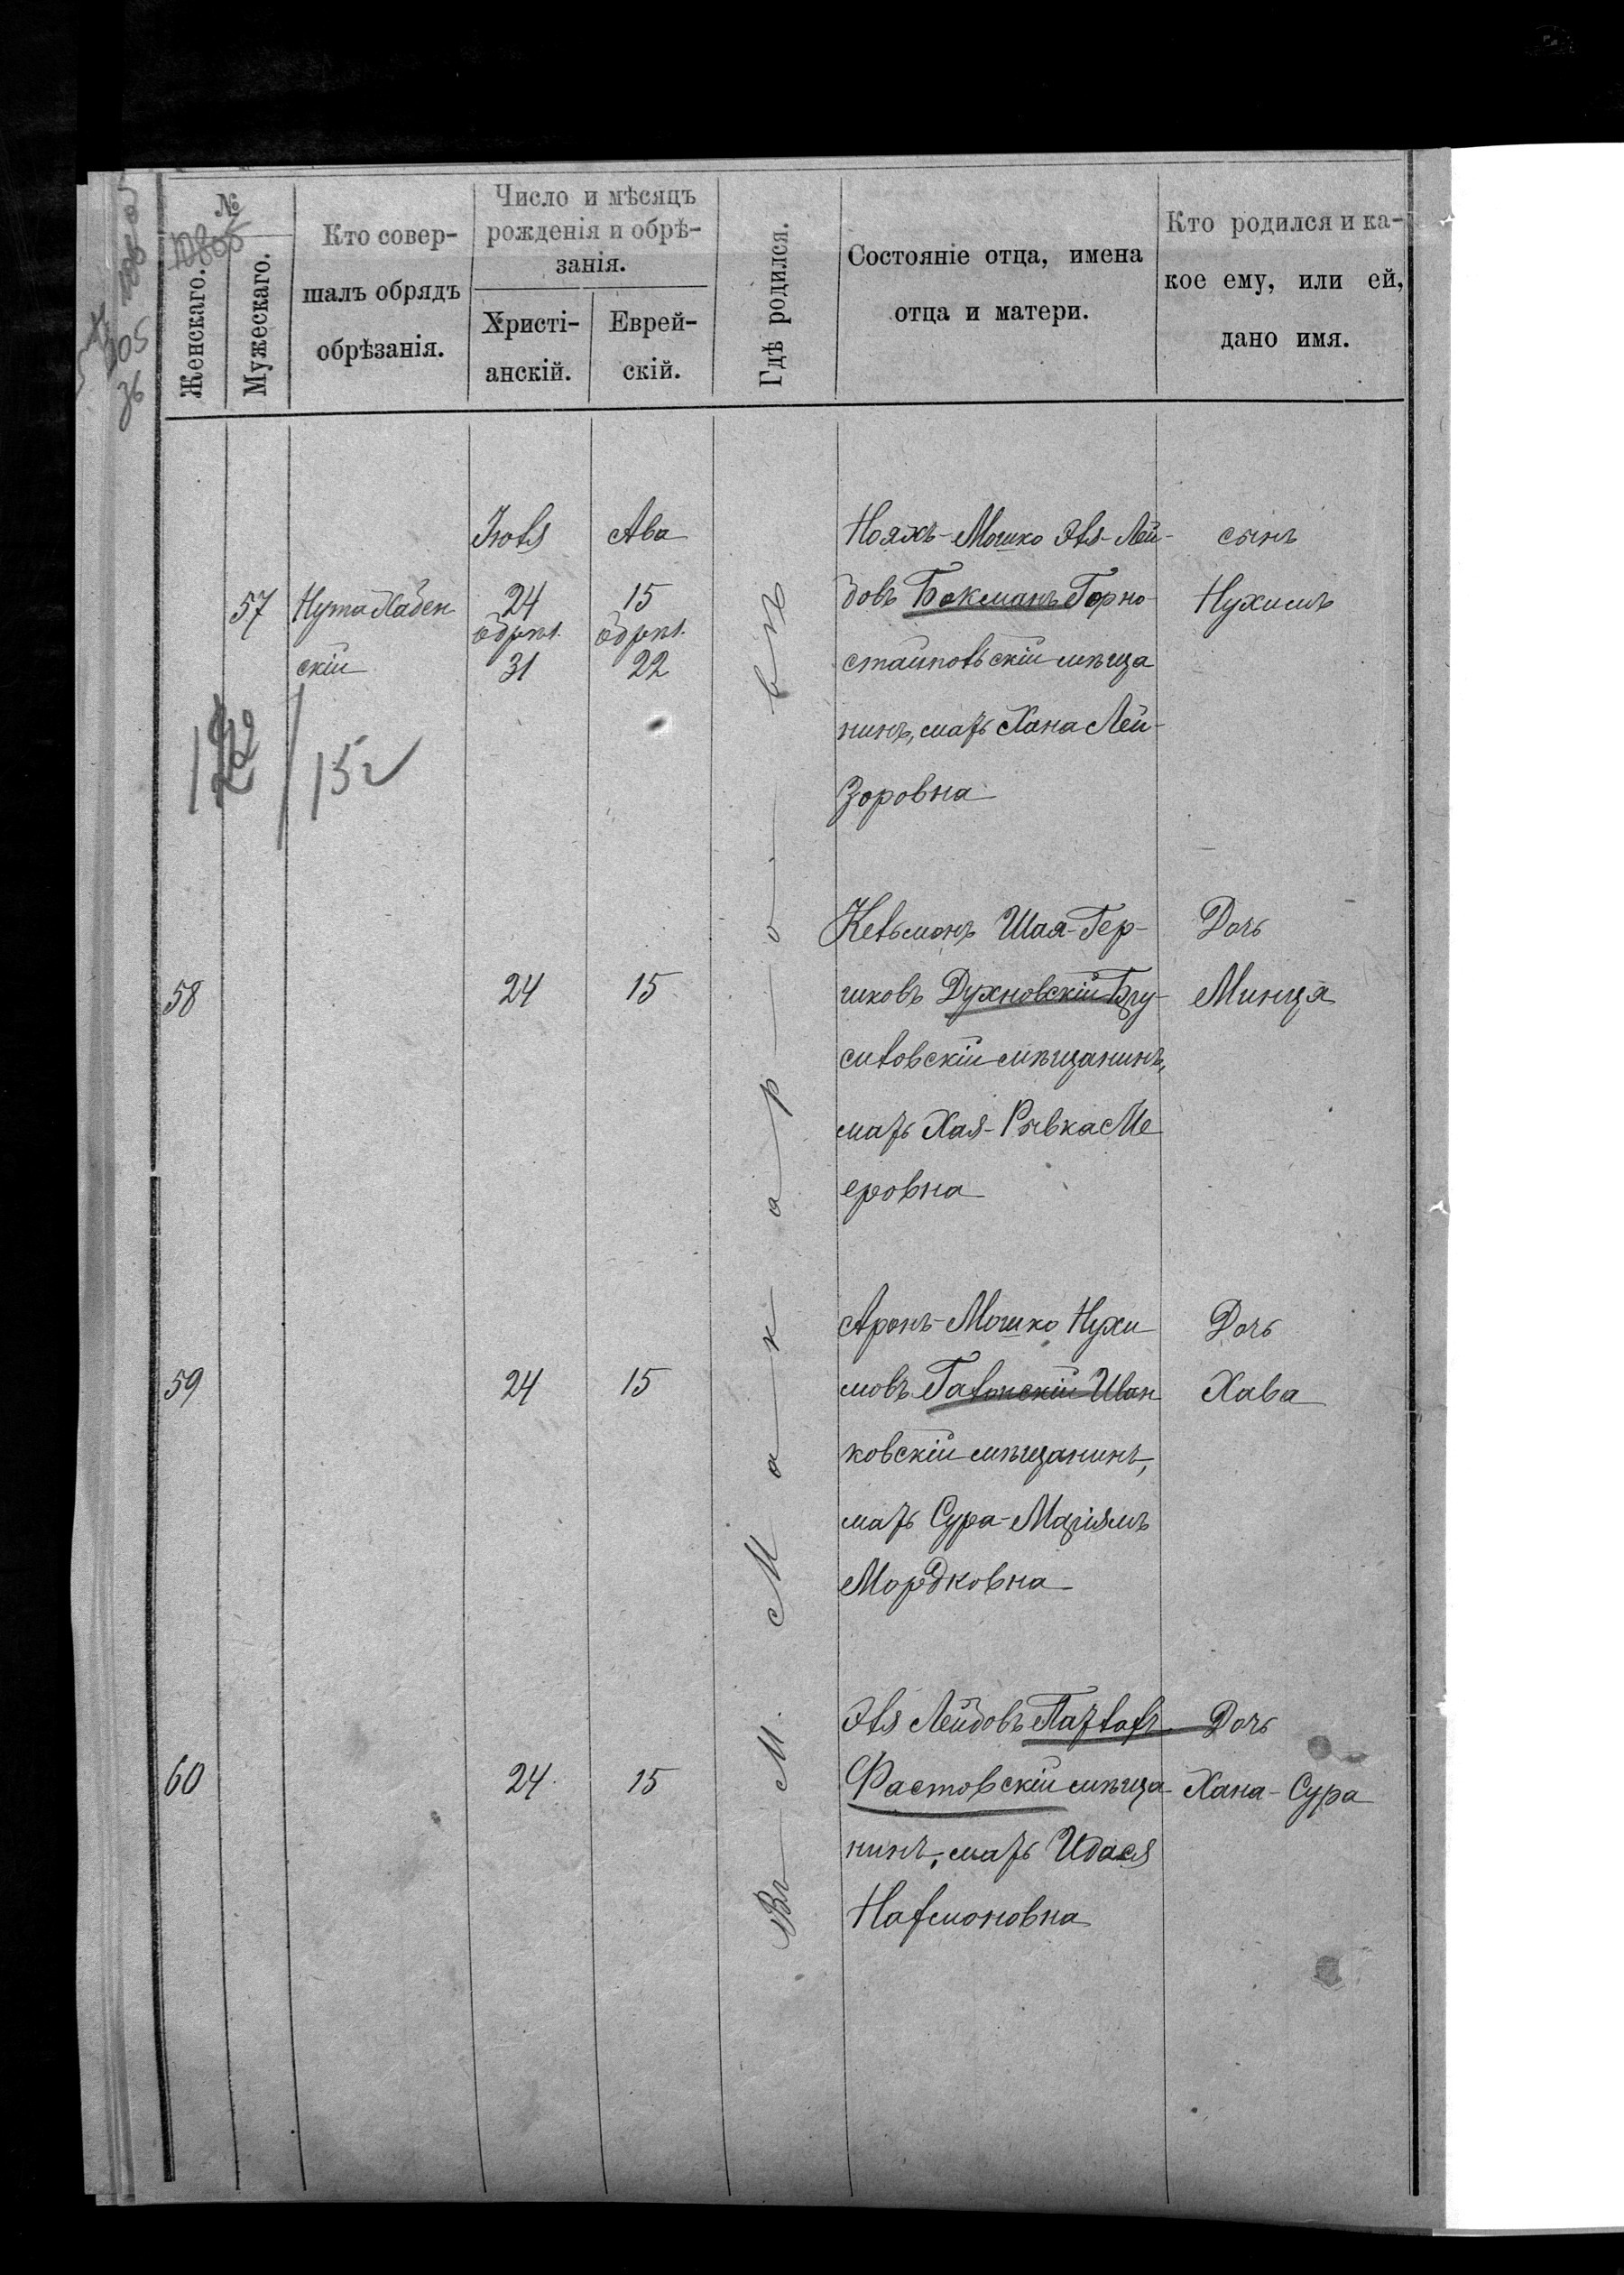 №
Женскаго.
Мужескаго.
Кто совер-
шалъ обрядъ
обрѣзанія.
Число и мѣсяцъ
рожденія и обрѣ-
занія.
Христі-
анскій.
Еврей-
скій.
Гдѣ родился.
Состояніе отца, имена
отца и матери.
Кто родился и ка-
кое ему, или ей,
дано имя.
Въ М. Макаровѣ
57
Нута Хабен
скій
Іюля
24
обрѣз.
31
Ава
15
обрѣз.
22
Нояхъ-Мошко Эля-Лей-
бовъ Бокманъ Горно-
стайпольскій мѣща
нинъ, мать Хана Лей-
зоровна
сынъ
Нухимъ
152
58
24
15
Кельманъ Шая-Гер-
шковъ Духновскій Бру-
силовскій мѣщанинъ,
мать Хая-Рывка Ме
еровна
Дочь
Минця
59
24
15
Аронъ-Мошко Нухи
мовъ Галонскій Иван
ковскій мѣщанинъ,
мать Сура-Маріямъ
Мордковна
Дочь
Хава
60
24
15
Эля Лейбовъ
Фастовскій мѣща
нинъ, мать Идася
Натмоновна
Дочь
Хана-Сура